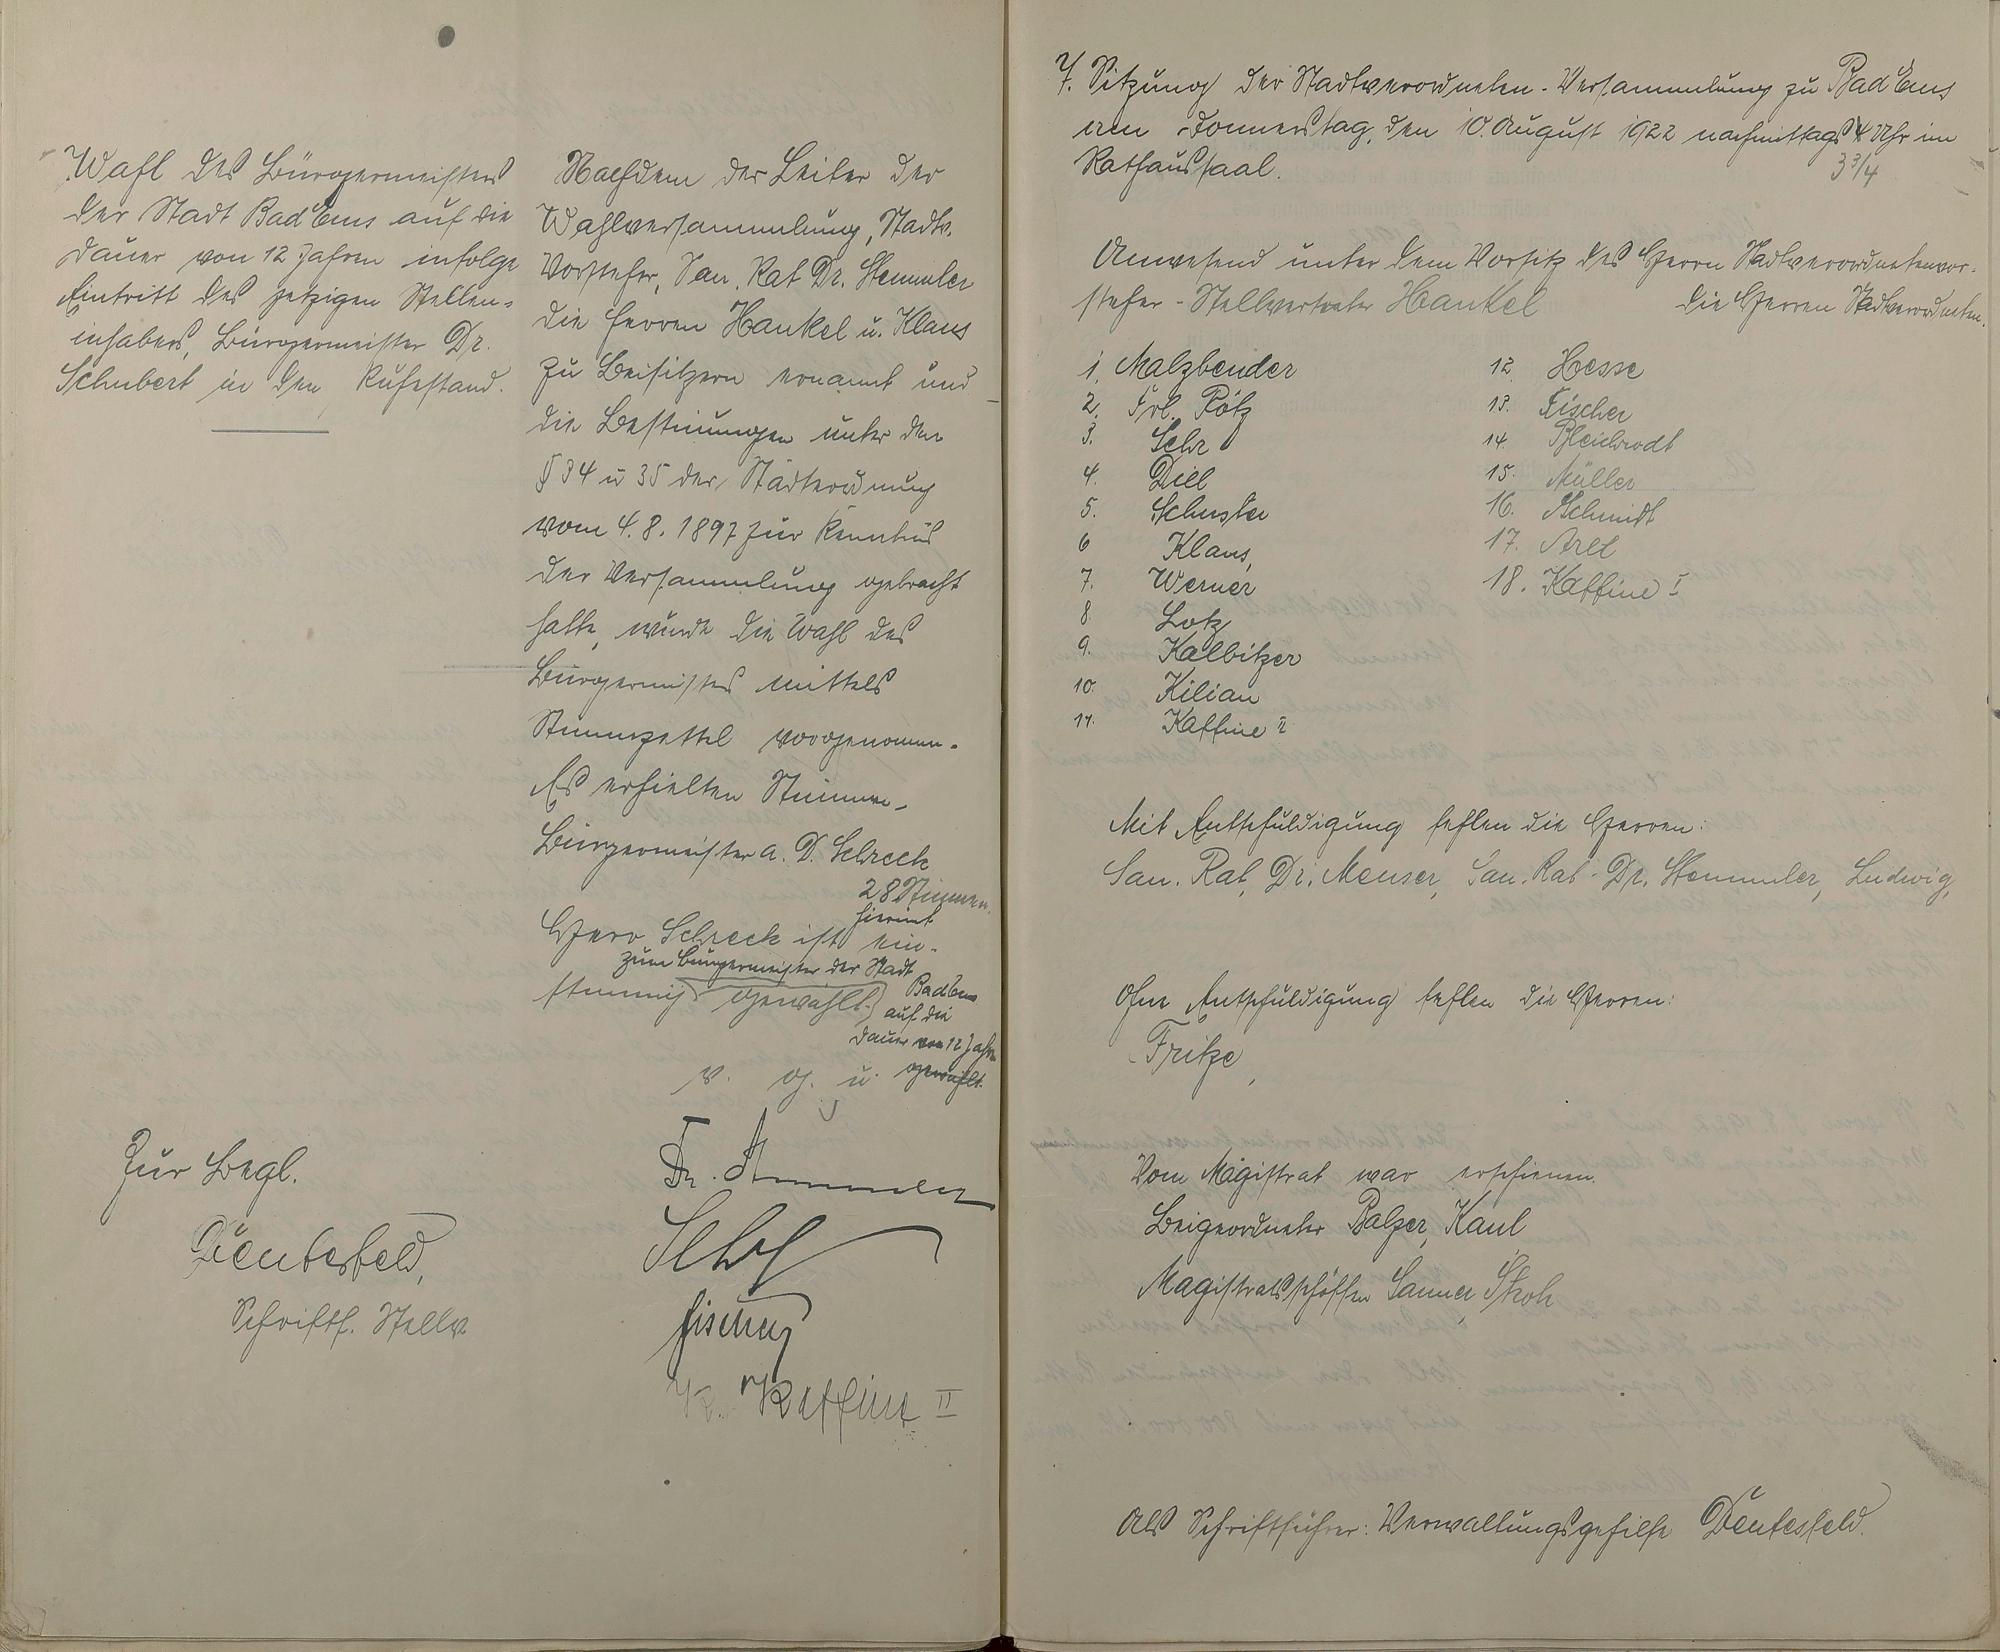 Wahl des Bürgermeisters
der Stadt Bad Ems auf die
Dauer von 12 Jahren infolge
Eintritt des jetzigen Stellen-
inhabers, Bürgermeister Dr.
Schubert in den Ruhestand.
Nachdem der Leiter der
Wahlversammlung, Stadtv.
Vorsteher, San. Rat Dr. Stemmler
die Herren Hankel u. Klaus
zu Beisitzern ernannt und
die Bestimmungen unter den
§ 34 u 35 der Städteordnung
vom 4. 8. 1897 zur Kenntnis
der Versammlung gebracht
hatte, wurde die Wahl des
Bürgermeisters mittels
Stimmzettel vorgenommen.
Es erhielten Stimmen
Bürgermeister a. D. Schreck
28 Stimmen.
hiermit
Herr Schreck ist ein-
zum Bürgermeister der Stadt
stimmig gewählt. Bad Ems
auf die
Dauer von 12 Jahren
v. g. u. gewählt.
Dr. Stemmler
Fischer
K. Kaffine II
Zur Begl.
Deutesfeld,
Schriftf. Stellv
7. Sitzung der Stadtverordneten-Versammlung zu Bad Ems
am Donnerstag, den 10. August 1922 nachmittags 4 Uhr im
3 3/4
Rathaussaal.
Anwesend unter dem Vorsitz des Herrn Stadtverordnetenvor-
steher-Stellvertreter Hankel die Herren Stadtverordneten.
1. Malzbender
2. Frl. Pötz
3. Sehr
4. Diel
5. Schuster
6 Klaus,
7. Werner
8 Lotz
9. Kalbitzer
10. Kilian
11. Kaffine II
12. Hesse
13. Fischer
14. Bleichrodt
15. Müller
16. Schmidt
17. Arel
18. Kaffine I
Mit Entschuldigung fehlen die Herren:
San. Rat, Dr. Meuser, San. Rat Dr. Stemmler, Ludwig,
Ohne Entschuldigung fehlen die Herren:
Fritze,
Vom Magistrat war erschienen.
Beigeordneter Balzer, Kaul
Magistratsschöffen Sanner, Stroh
Als Schriftführer: Verwaltungsgehilfe Deutesfeld.